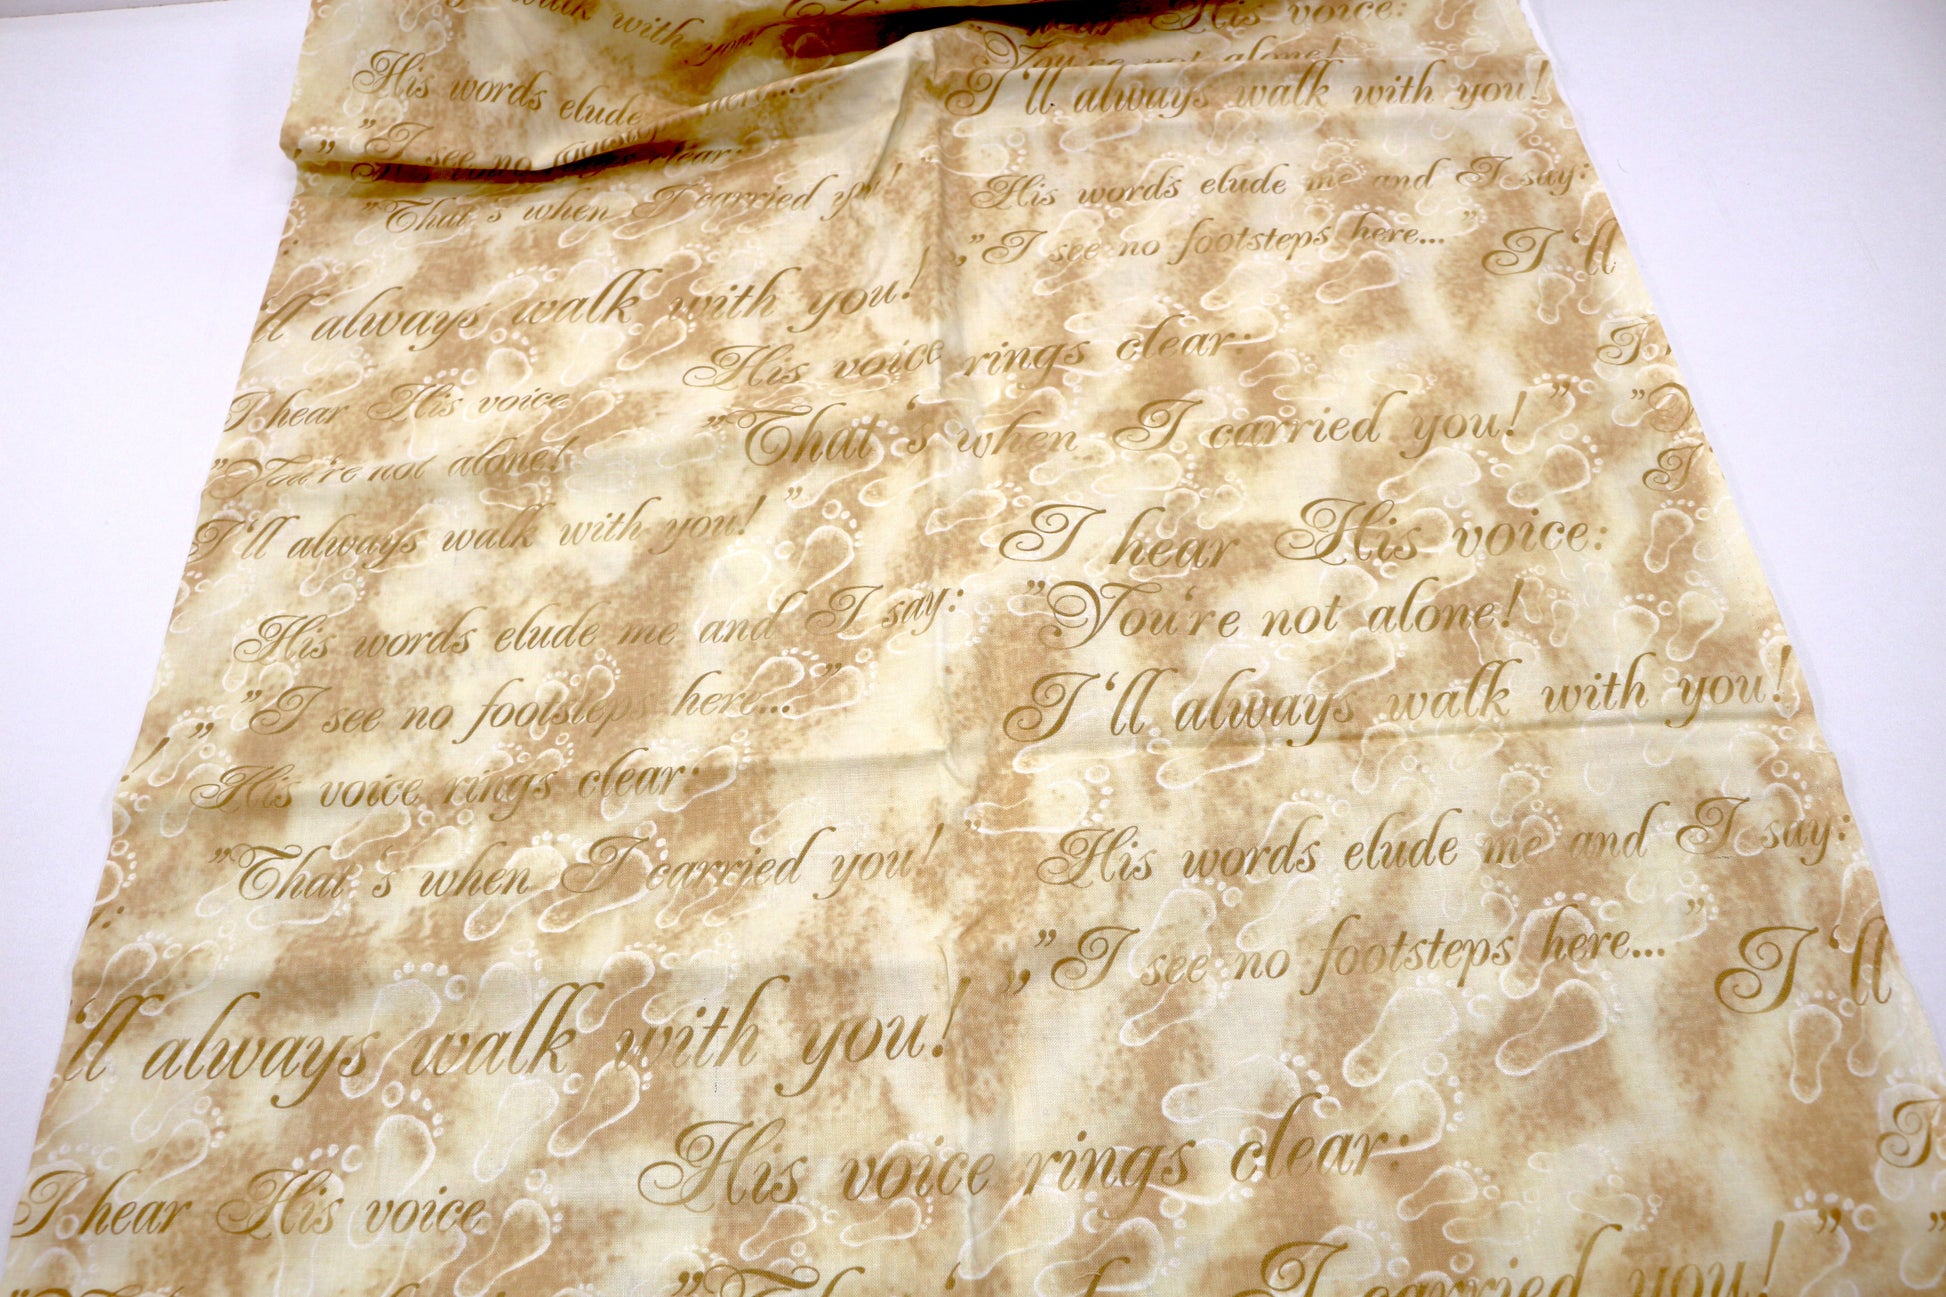 walk with you!
His voice:
His words elude here...
I'll always walk with you!
"I see no
clear:
"That's when I carried you!
His words elude me and I say:
"I see no footsteps here..."
I'll
'll always walk with you!
His voice rings clear:
I hear His voice
"That's when I carried you!"
"You're not alone!
I'll always walk with you!"
I hear His voice:
"You're not alone!
His words elude me and I say:
I'll always walk with you!
"I see no footsteps here..."
His voice rings clear:
"That's when I carried you!"
His words elude me and I say:
"I see no footsteps here..."
I'll
'll always walk with you!
His voice rings clear:
I hear His voice
I carried you!"